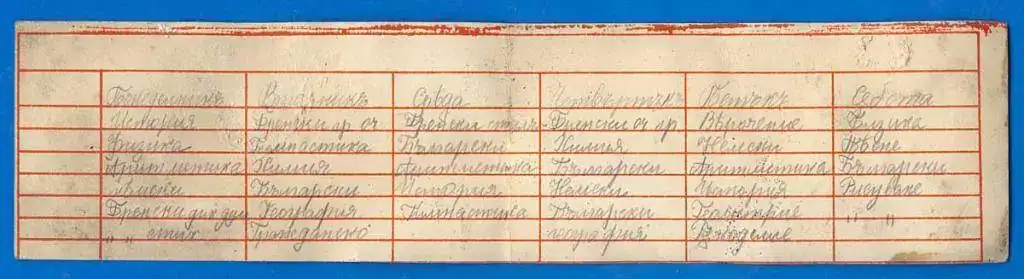 Понеделникъ Вторникъ Срѣда Четвъртъкъ Петъкъ Събота
История Френски гр. оч. Френски Френски оч. гр. Вѣроучение Физика
Физика Гимнастика Български Химия Немски Пѣние
Аритметика Химия Аритметика Български Аритметика Български
Немски Български История Немски История Рисуване
Френски География Гимнастика Български " "
" " Гражданско География